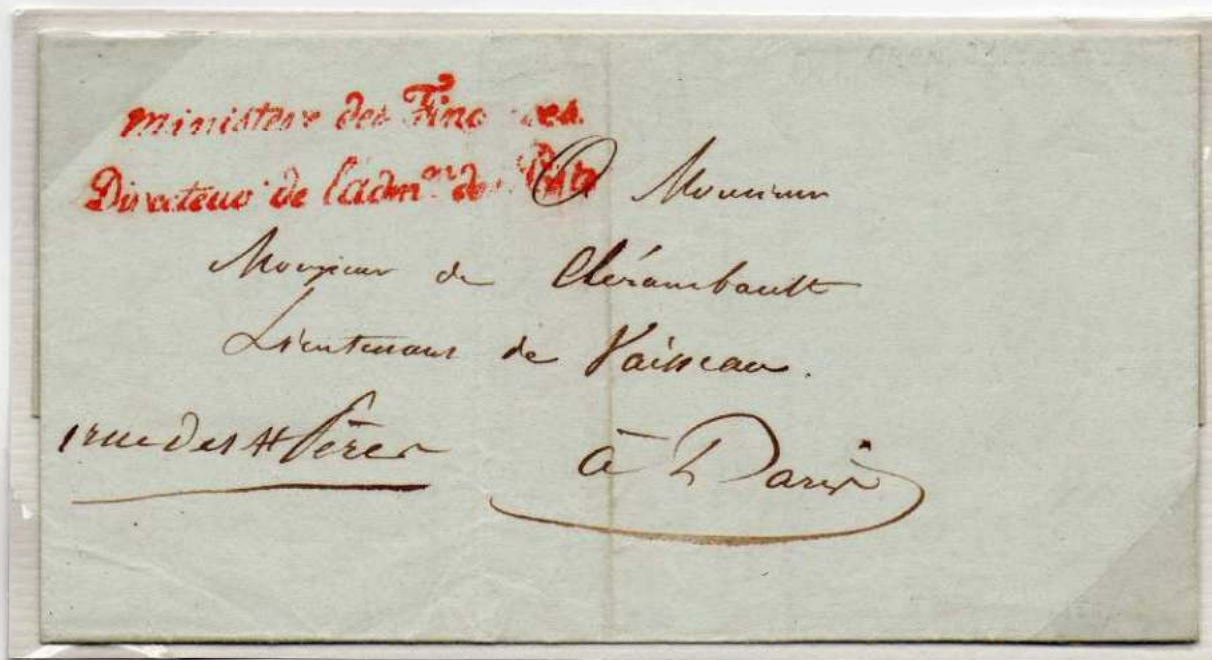 Ministere des Finances
Directeur de l'adm.on des Postes
A Monsieur
Monsieur de Clérambault
Lieutenant de Vaisseau.
rue des Sts Pères
à Paris